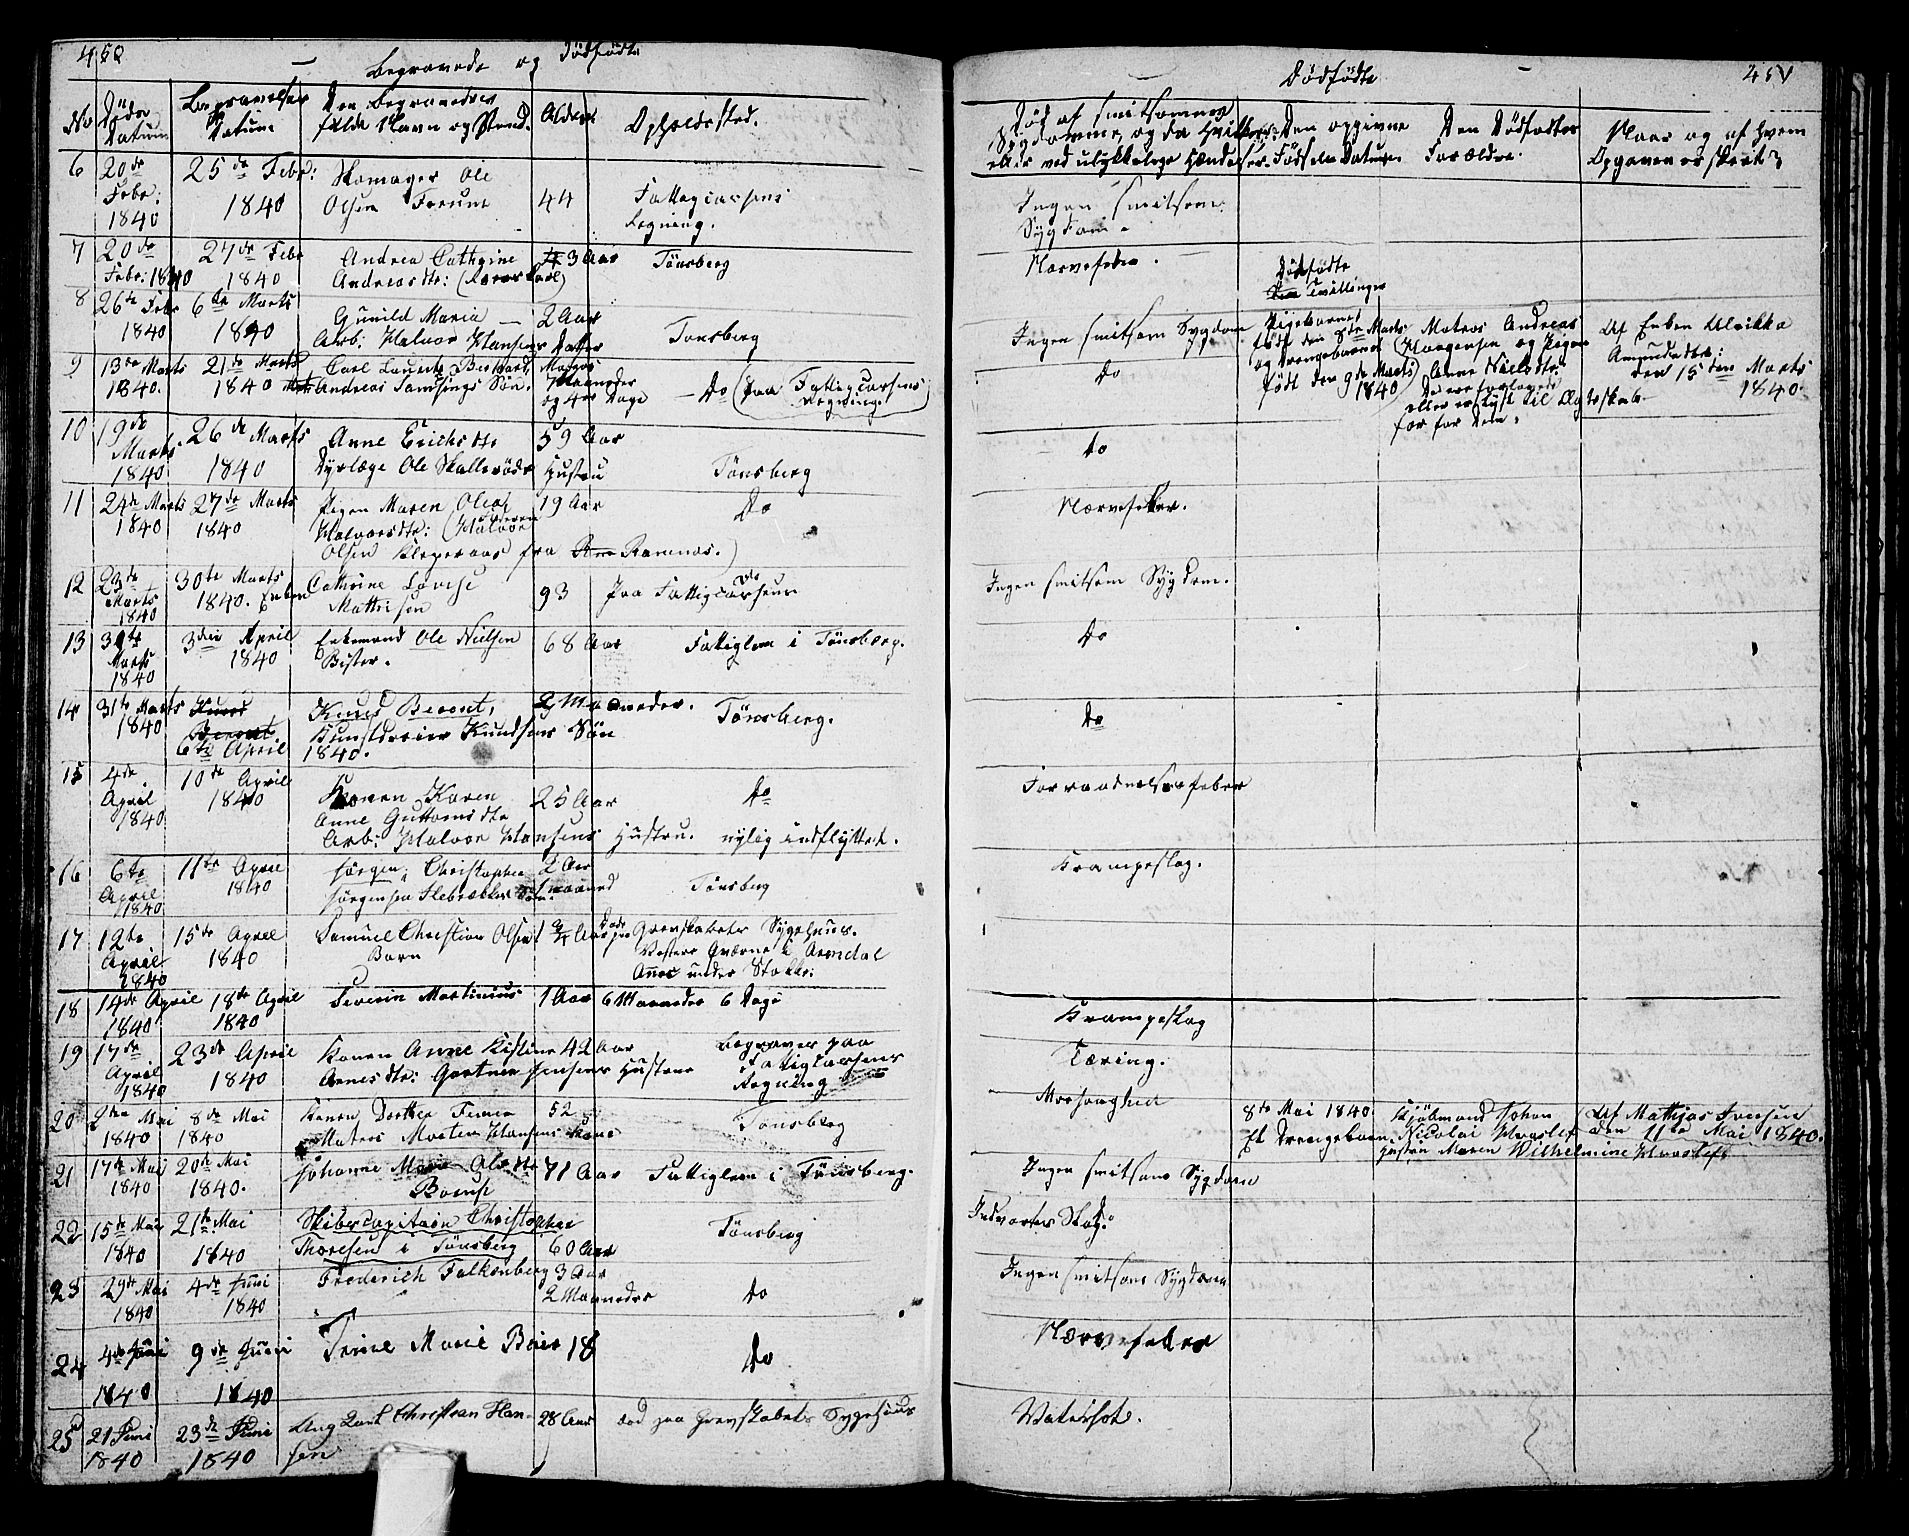 450
Begravede og Dødfødte
No
Døds Datum
Begravelses Datum
Den Begravedes fulde Navn og Stand.
Alder
Opholdssted.
6
20de Febr: 1840
25de Febr: 1840
Skomager Ole Olsen
44
Fattigcassens Regning.
7
20de Febr: 1840
27de Febr 1840
Andrea Cathrine Andreasdtr:
3 Aar
Tönsberg
8
26te Febr 1840
6te Marts 1840
Gunild Maria
Arb: Halvor Hansens Datter
2 Aar
Tönsberg
9
13de Marts 1840.
21de Marts 1840
Carl Laurits
Andreas Samsings Søn.
Maaneder og 4re Dage
Do (paa Fattigcassens Regning.)
10
19de Marts 1840
26de Marts 1840
Anne Erichsdtr
Dyrlæge Ole Skallerøds Hustru
59 Aar
Tönsberg
11
24de Marts 1840
27de Marts 1840
Pigen Maren Olea Halvorsdtr: (Halvor
Olsen fra Ramnæs.)
19 Aar
Do
12
23de Marts 1840
30te Marts 1840.
Enken Cathrine Lovise Mathisen
93
Paa Fattigcassens
13
30te Marts 1840
3die April 1840
Enkemand Ole Nielsen Bister.
68 Aar
Fattiglem i Tönsberg.
14
31te Marts 1840
6te April 1840.
Knud Berent,
Knudsens Søn
2 Maaneder.
Tönsberg.
15
4de April 1840
10de April 1840
Konen Karen Anne Guttormsdtr
Arb: Halvor Hansens Hustru.
25 Aar
Do
nylig indflyttet.
16
6te April 1840
11te April 1840
Jørgen Christopher
Jørgensen Slebrækkes Søn.
2 Aar
1 maaned
Tönsberg
17
12te April 1840
15de April 1840
Samuel Christian Olsens Barn
1 3/4 Aar
Grevskabets Sygehuus.
under Stokke:
18
14de April 1840
18de April 1840
Severin Martinius
1 Aar 6 Maaneder 6 Dage
19
17de April 1840
23de April 1840
Konen Anne Kistine Arnesdtr: Gartner Jensens Hustrue
42 Aar
Begraves paa Fattigcassens Regning
20
2den Mai 1840
8de Mai 1840
Konen Dorthea
Matros Morten Hansens Kone
52
Tönsberg
21
17de Mai 1840
20de Mai 1840.
Johanne Marie Olsdtr
71 Aar
Fattiglem i Tönsberg.
22
15de Mai 1840
21de Mai 1840
Skibscapitain Christopher
Thoresen i Tönsberg
60 Aar
Tönsberg
23
29de Mai 1840
4de Juni 1840
Frederich Falkenberg
3 Aar
2 Maaneder
Do
24
4de Juni 1840
9de Juni 1840
Trine Marie Beier
18
Do
25
21 Juni 1840
23de Juni 1840
Ung Karl Christian Hansen
28 Aar
død paa Grevskabets Sygehuus
Dødfødte
451
Død af smitsomme Sygdomme, og da hvilken,
eller ved ulykkelige Hændelser.
Den opgivne Fødsels Datum.
Den Dødfødtes Forældre.
Naar og af hvem Opgaven er skeet?
Ingen smitsom Sygdom.
Nervefeber.
Dødfødte Tvillinger
Ingen smitsom Sygdom
Pigebarnet født den 8de Marts
og Drengebarnet født den 9de Marts 1840
Matros Andreas Morgensen og Pigen
Anne Nielsdtr:
Af Enken Ulrikka Amundsdtr:
den 15den Marts 1840.
Do
Do
Nervefeber.
Ingen smitsom Sygdom.
Do
Do
Forraadnelsesfeber
Krampeslag.
Krampeslag
Tæring.
8de Mai 1840.
Et Drengebarn
Kjøbmand Johan Nicolai
Hustru Maren Wilhelmine
Af Mathias Iversen
den 11te Mai 1840.
Ingen smitsom Sygdom
Indvortes Slag.
Ingen smitsom Sygdom
Nervefeber
Vatersot.